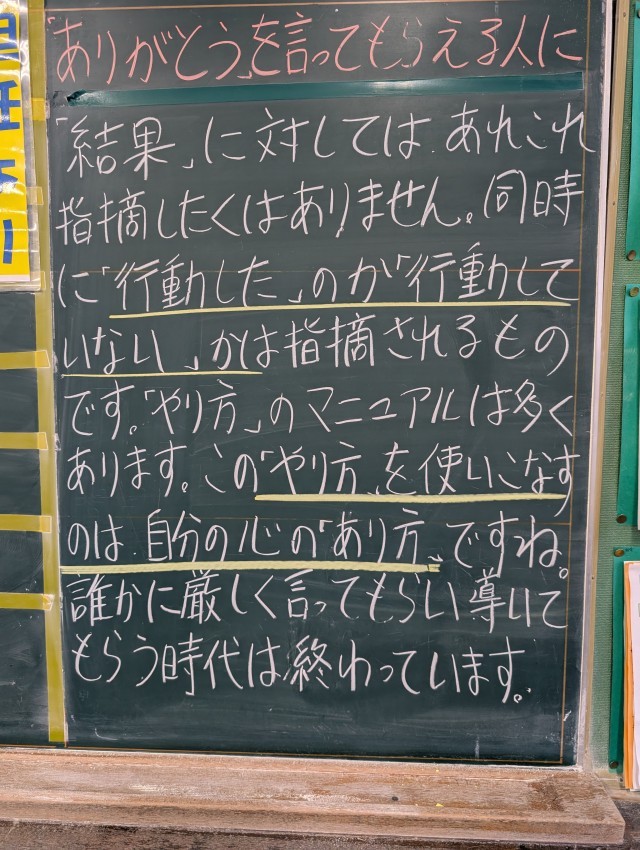 「ありがとう」を言ってもらえる人に
「結果」に対しては、あれこれ
指摘したくはありません。同時
に「行動した」のが「行動して
いない」かは指摘されるもの
です。「やり方」のマニュアルは多く
あります。この「やり方」を使いこなす
のは、自分の心の「あり方」ですね。
誰かに厳しく言ってもらい導いて
もらう時代は終わっています。